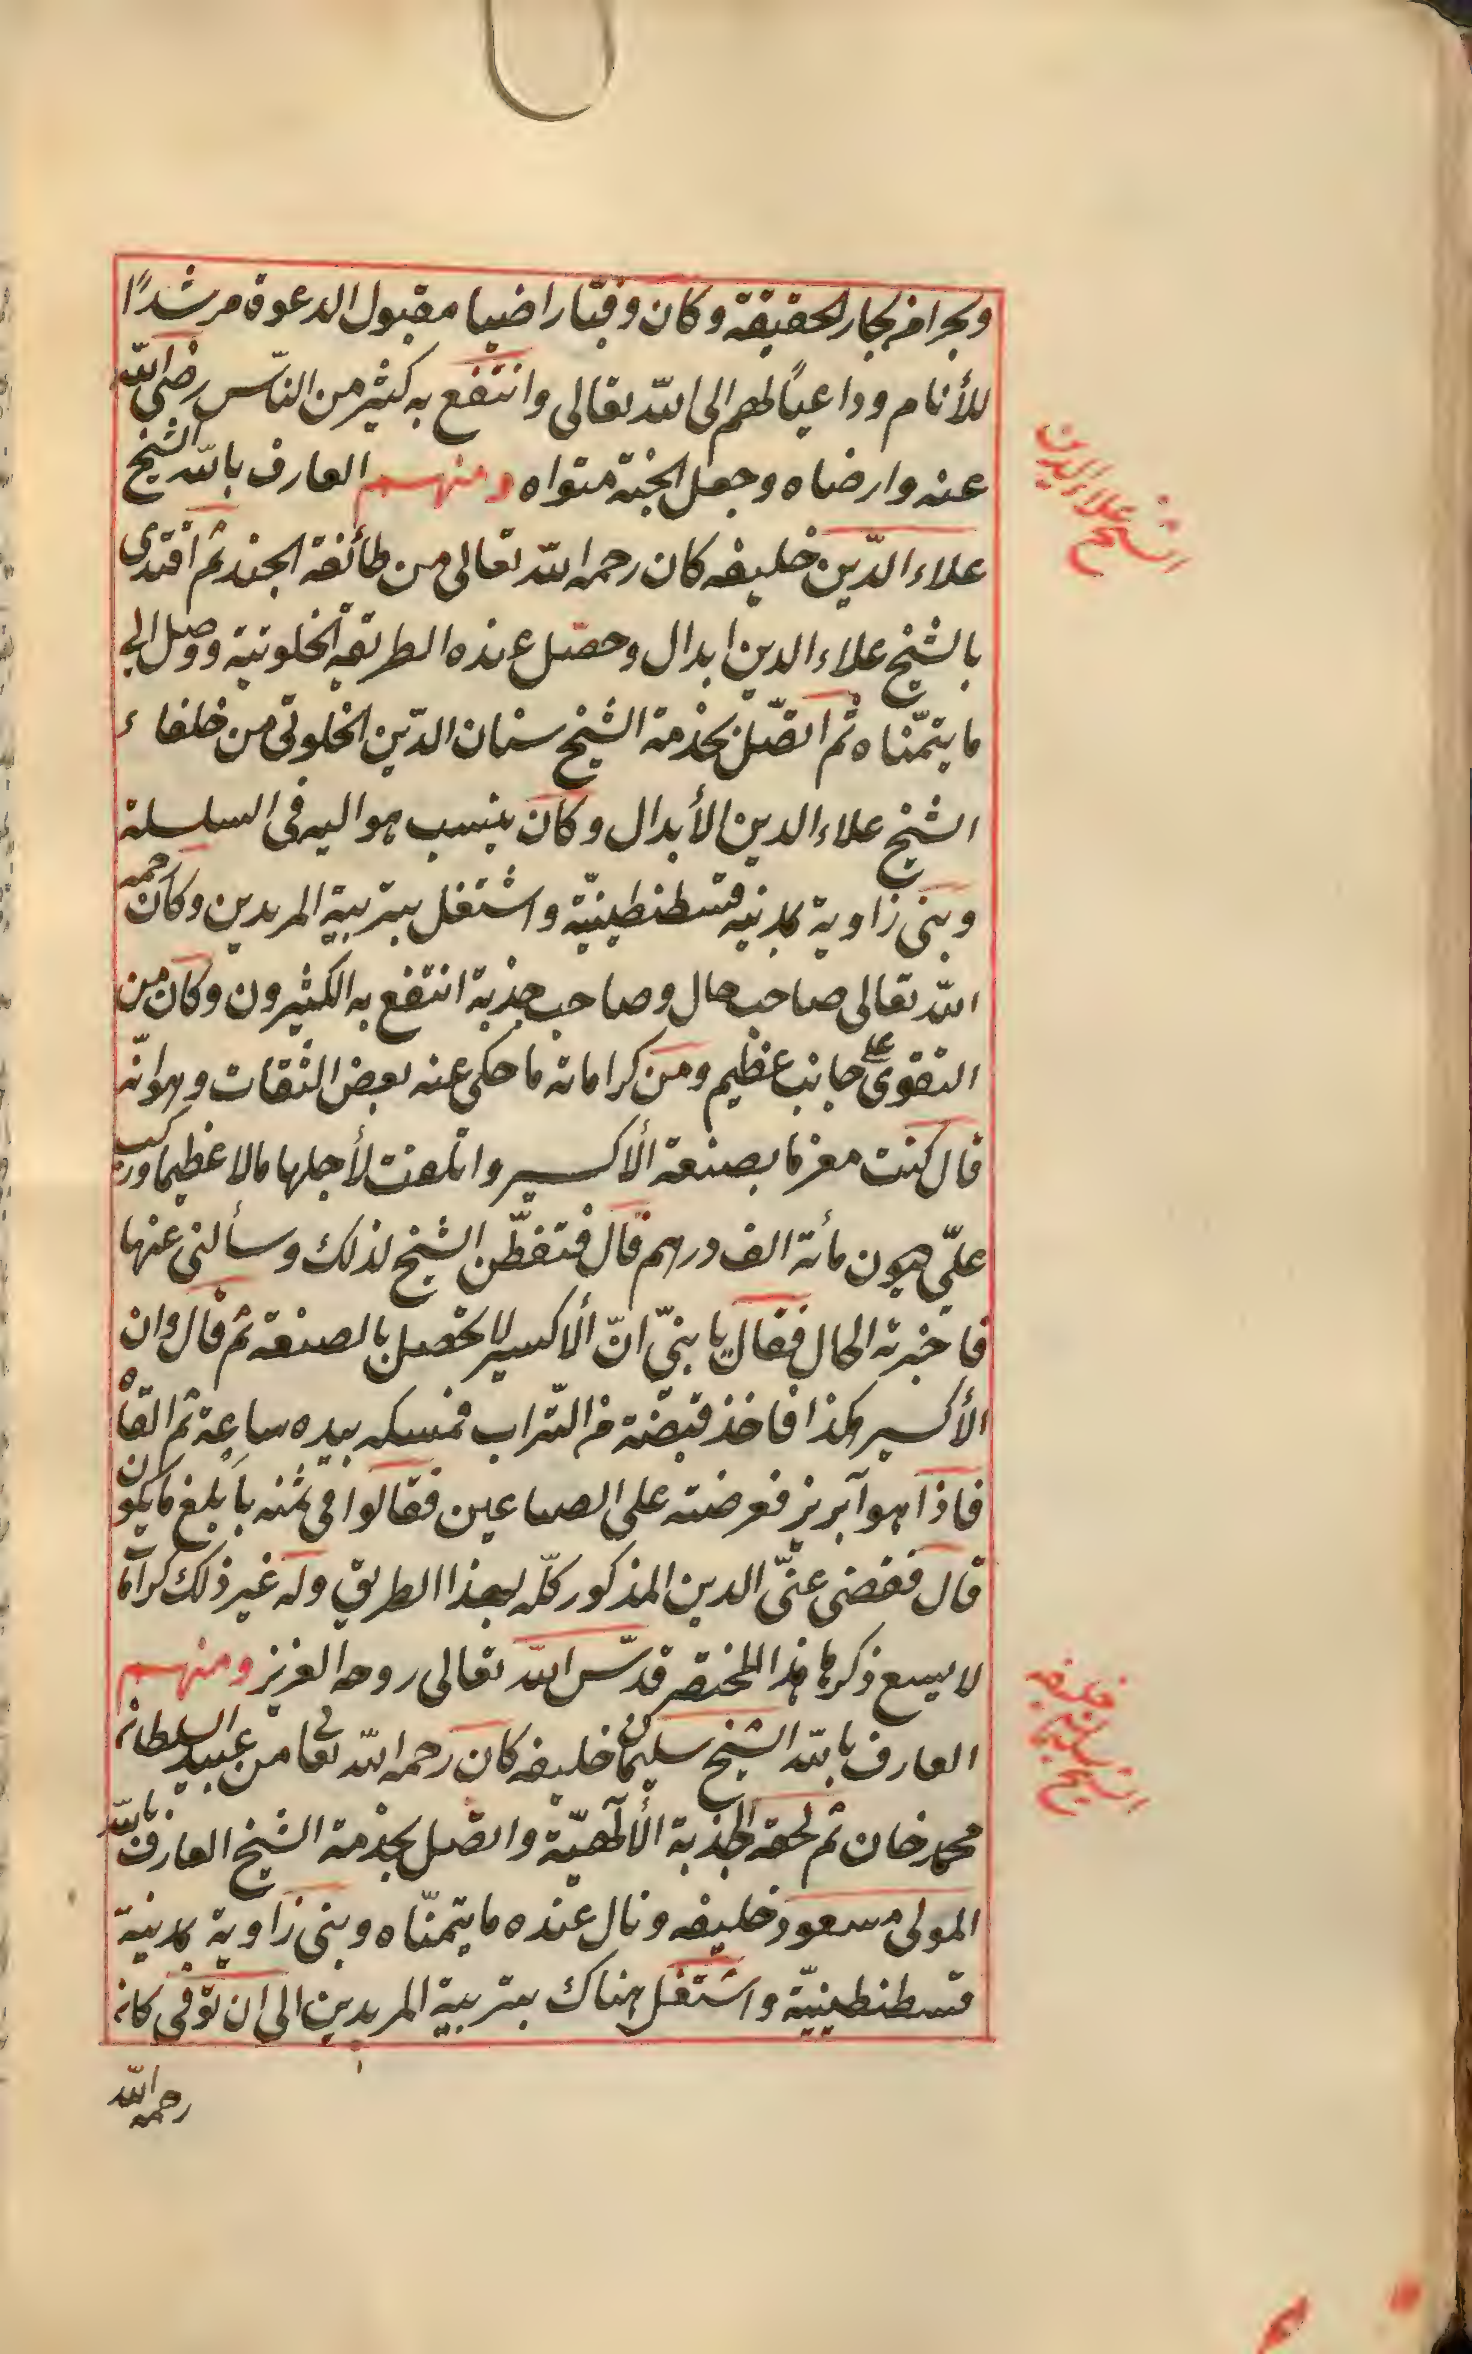 وبحرا من بحار الحقيقة وكان وقتا راضيا مقبول الدعوة مرشدًا
للأنام وداعياً لهم الى الله تعالى وانتفع به كثير من الناس رضى الله
عنه وارضاه وجعل الجنة مثواه ومنهم العارف بالله الشيخ
علاء الدّين خليفه كان رحمه الله تعالى من طائفة الجند ثم اقتدى
بالشيخ علاء الدين ابدال وحصّل عنده الطريقة الخلوتية ووصل الى
ما يتمنّاه ثم اتصّل بخدمة الشيخ سنان الدّين الخلوتى من خلفاء
الشيخ علاء الدين الأبدال وكان ينسب هو اليه فى السلسلة
وبنى زاوية بمدنيه قسطنطينيّة واشتغل بتربية المريدين وكان رحمه
الله تعالى صاحب حال وصاحب جذبة انتفع به الكثيرون وكان من
التقوى على جانب عظيم ومن كراماته ما حكى عنه بعض الثقات وهو انّه
قال كنت مغرما بصنعة الأكسير واتلفت لأجلها مالا عظيما وركب
علىّ ديون مأتة الف درهم قال فتفطّن الشيخ لذلك وسألنى عنها
فاخبرته الحال فقال يا بنىّ انّ ألاكسير لا يحصل بالصنعة ثم قال وان
الأكسير هكذا فاخذ قبضة من التراب فمسكه بيده ساعة ثم القاه
فاذا هو آبريز فعرضته على الصباغين فقالوا فى ثمنه بابلغ ما يكون
قال فقضى عنّى الدين المذكور كلّه بهذا الطريق وله غير ذلك كرامات
لا يسع ذكرها هذا المختصر قدّس الله تعالى روحه العزيز ومنهم
العارف بالله الشيخ سليمان خليفه كان رحمه الله تعا من عبيد السلطان
محمد خان ثم لحقه الجذبة الألٓهيّة واتصل بخدمة الشيخ العارف بالله
المولى مسعود خليفه ونال عنده ما يتمنّاه وبنى زاوية بمدنية
قسطنطينيّة واشتغل هناك بتربية المريدين الى ان توّفى كان
رحمه الله
الشيخ علاء الدين
الشيخ سليمان خليفه